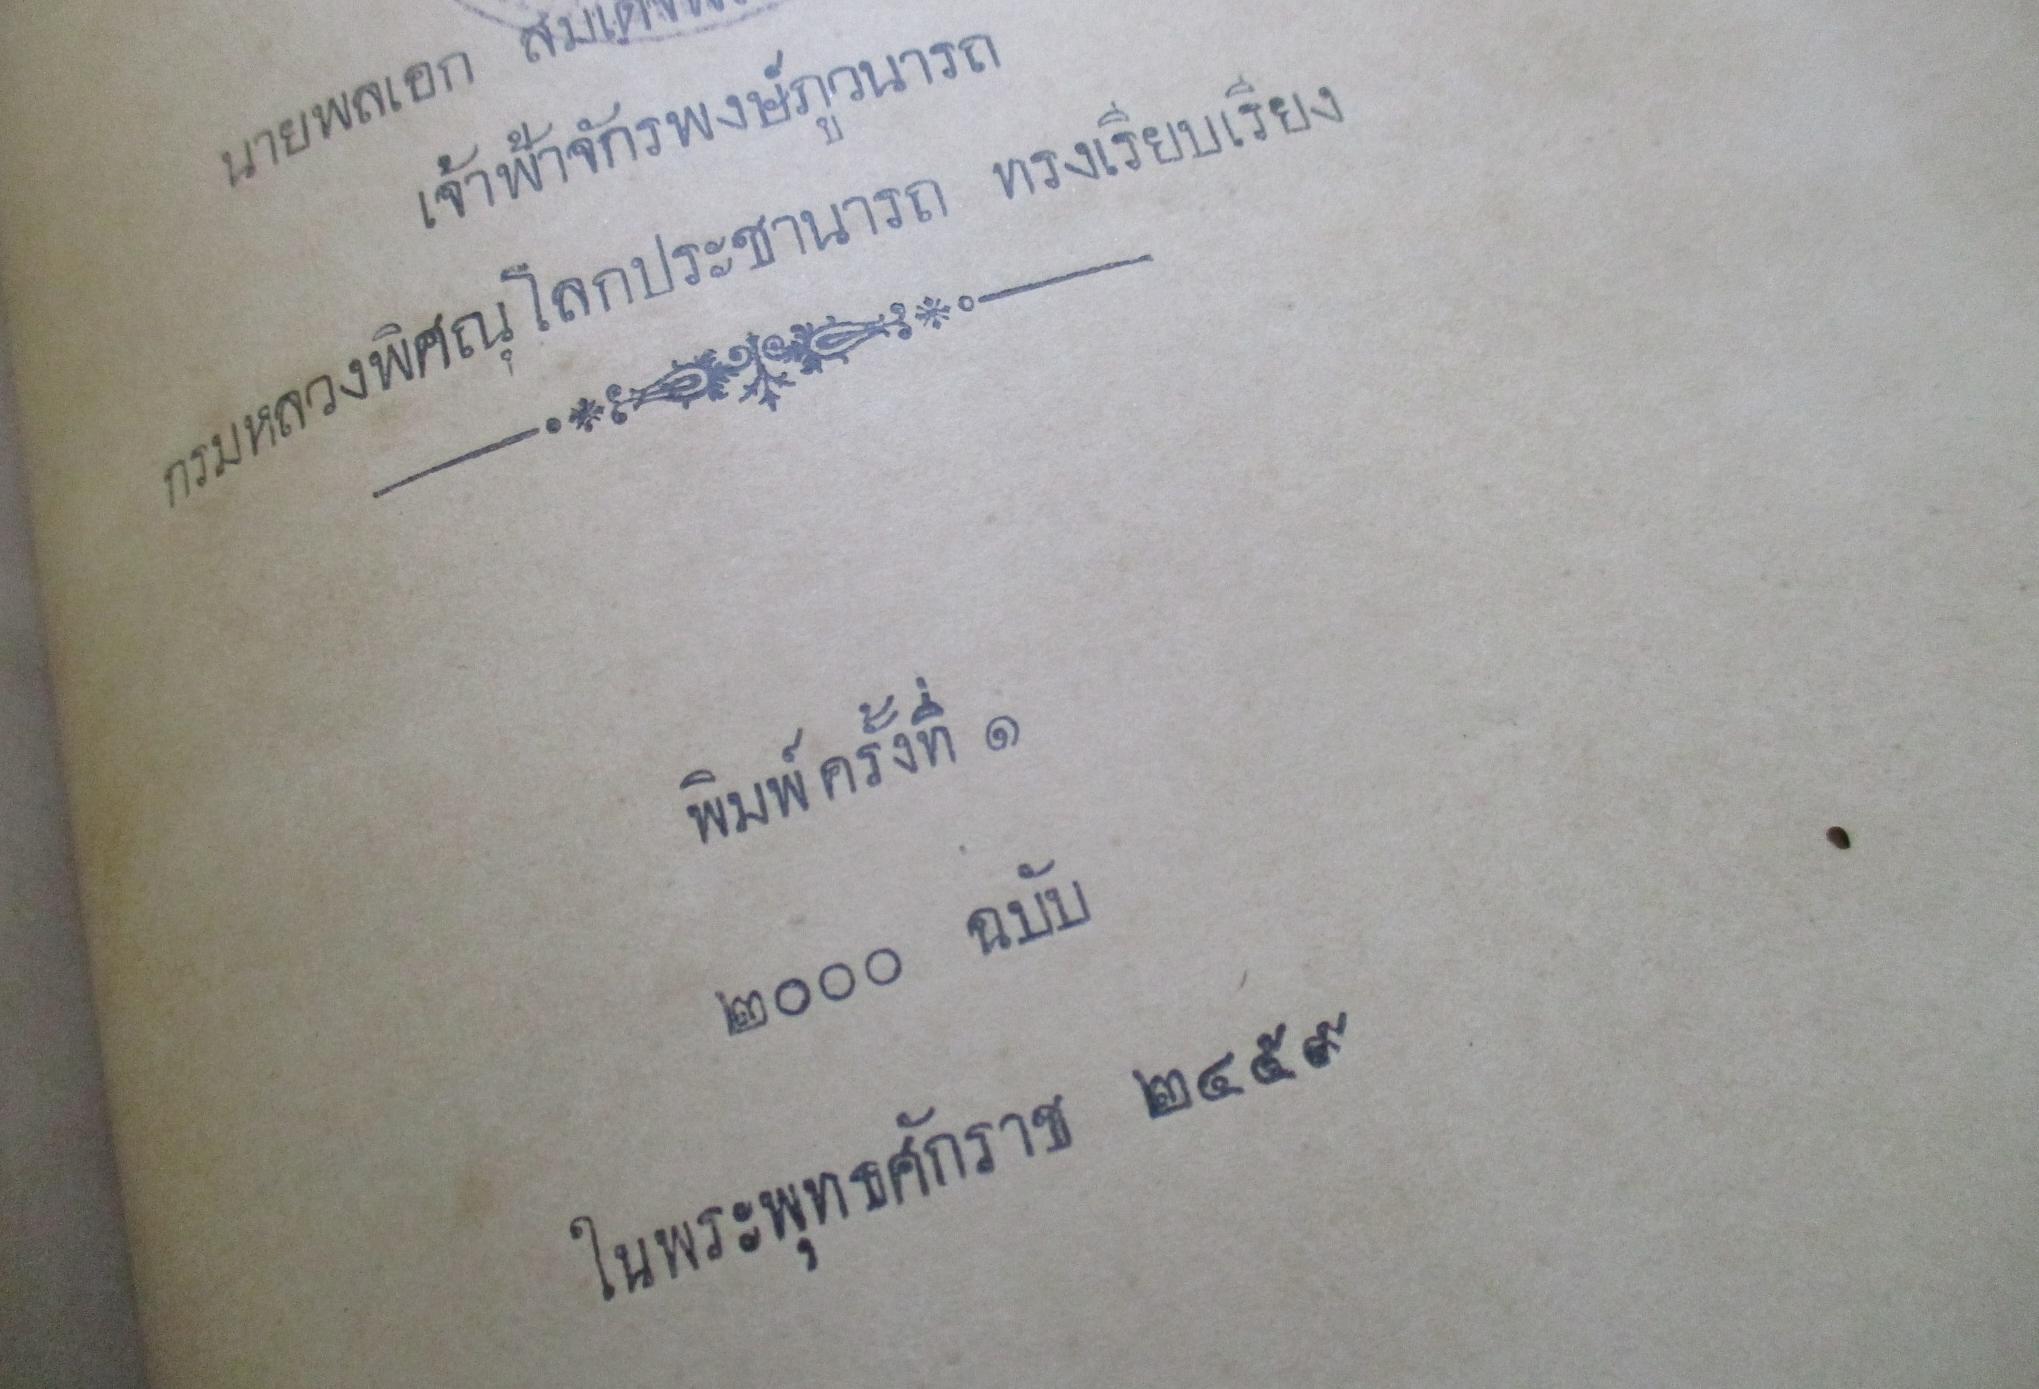 นายพลเอก
เจ้าฟ้าจักรพงษ์ภูวนารถ
กรมหลวงพิศณุโลกประชานารถ ทรงเรียบเรียง
พิมพ์ครั้งที่ ๑
๒๐๐๐ ฉบับ
ในพระพุทธศักราช ๒๔๕๙